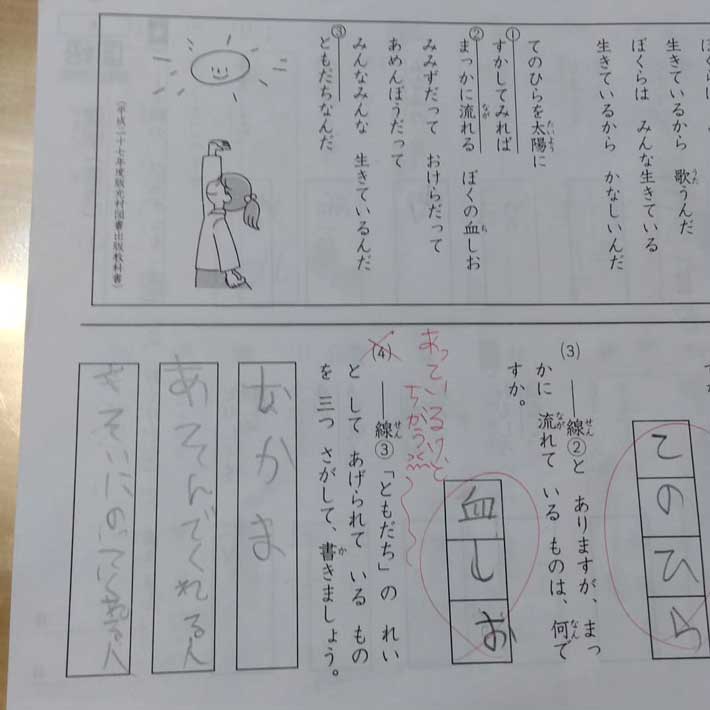 ぼくらは
生きているから 歌うんだ
ぼくらは みんな生きている
生きているから かなしいんだ
てのひらを太陽に
①すかしてみれば
②まっかに流れる ぼくの血しお
みみずだって おけらだって
あめんぼうだって
みんなみんな 生きているんだ
③ともだちなんだ
(平成二十七年度版光村図書出版教科書)
てのひら
(3) ——線②と ありますが、まっ
かに 流れて いる ものは、何で
すか。
血しお
あっているけど
ちがう
(4) ——線③「ともだち」の れい
と して あげられて いる もの
を 三つ さがして、書きましょう。
なかま
あそんでくれる人